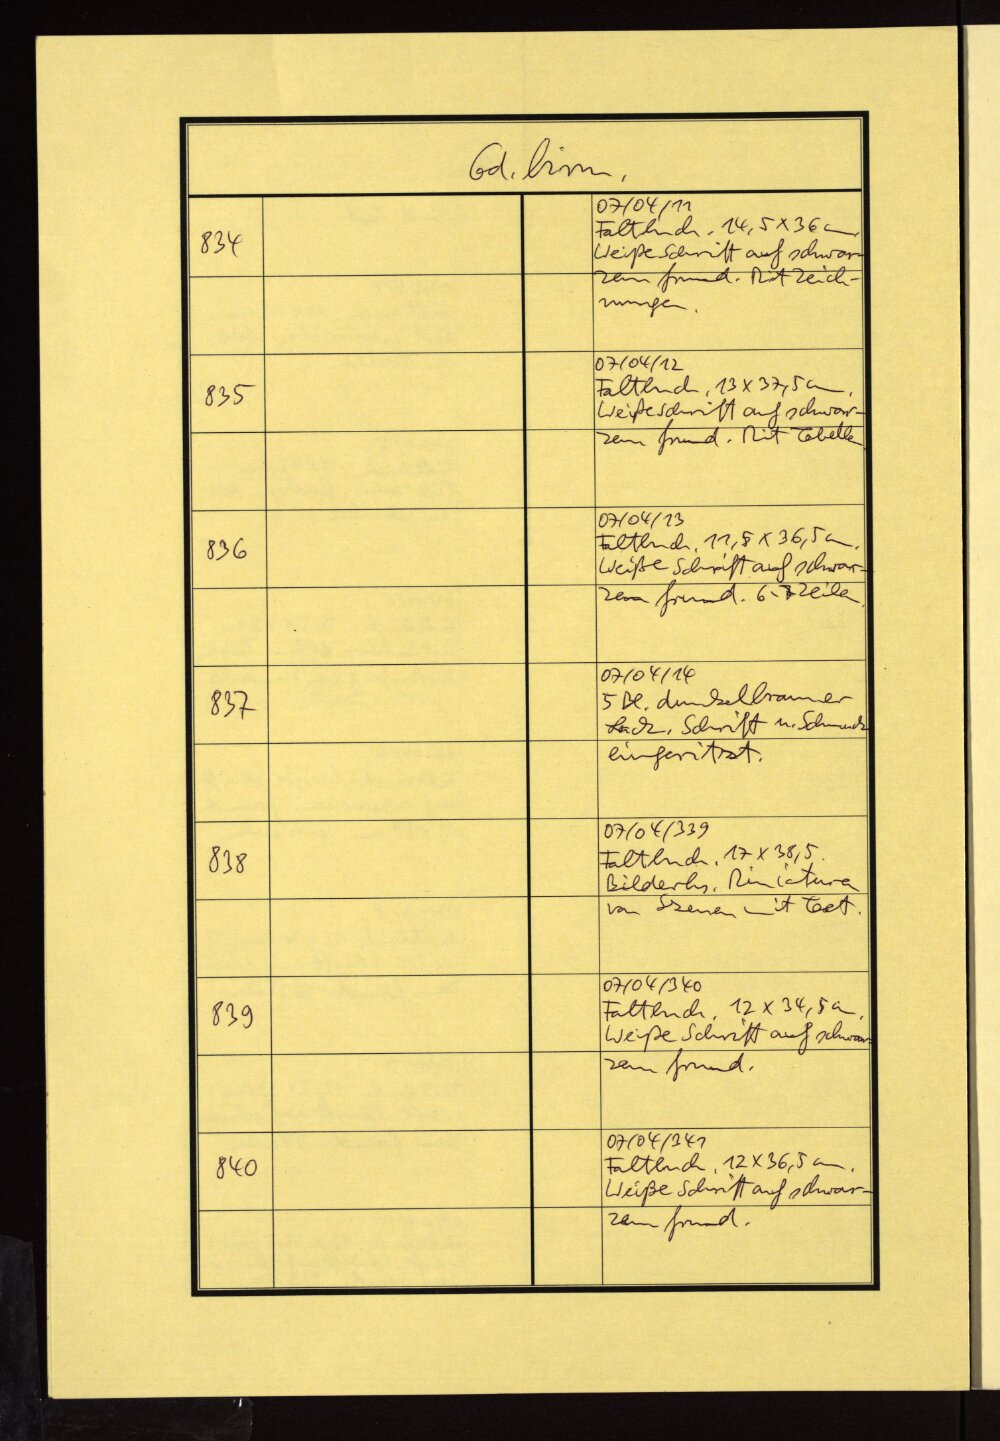 Cod. birm.
834
07/04/11
Faltbuch. 14,5 x 36 cm.
Weiße Schrift auf schwar-
zem Grund. Mit Zeich-
nungen.
835
07/04/12
Faltbuch. 13 x 37,5 cm.
Weiße Schrift auf schwar-
zem Grund. Mit Tabellen
836
07/04/13
Faltbuch. 11,5 x 36,5 cm.
Weiße Schrift auf schwar-
zem Grund. 6-7 Zeilen
837
07/04/14
5 Bl. dunkelbrauner
Lack. Schrift u. Schmuck
eingeritzt.
838
07/04/339
Faltbuch. 17 x 38,5.
Bilderhs. Miniaturen
von Szenen mit Text.
839
07/04/340
Faltbuch. 12 x 34,5 cm.
Weiße Schrift auf schwar-
zem Grund.
840
07/04/341
Faltbuch. 12 x 36,5 cm.
Weiße Schrift auf schwar-
zem Grund.